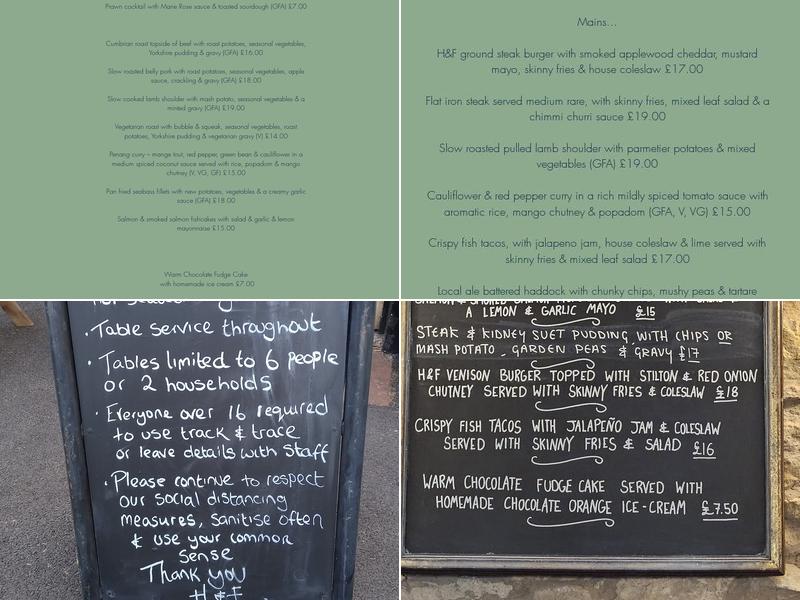 Prawn cocktail with Marie Rose sauce & toasted sourdough (GFA) £7.00
Cumbrian roast topside of beef with roast potatoes, seasonal vegetables,
Yorkshire pudding & gravy (GFA) £16.00
Slow roasted belly pork with roast potatoes, seasonal vegetables, apple
sauce, crackling & gravy (GFA) £18.00
Slow cooked lamb shoulder with mash potato, seasonal vegetables & a
minted gravy (GFA) £19.00
Vegetarian roast with bubble & squeak, seasonal vegetables, roast
potatoes, Yorkshire pudding & vegetarian gravy (V) £14.00
Penang curry – mange tout, red pepper, green bean & cauliflower in a
medium spiced coconut sauce served with rice, popadom & mango
chutney (V, VG, GF) £15.00
Pan fried seabass fillets with new potatoes, vegetables & a creamy garlic
sauce (GFA) £18.00
Salmon & smoked salmon fishcakes with salad & garlic & lemon
mayonnaise £15.00
Warm Chocolate Fudge Cake
with homemade ice cream £7.00
Mains...
H&F ground steak burger with smoked applewood cheddar, mustard
mayo, skinny fries & house coleslaw £17.00
Flat iron steak served medium rare, with skinny fries, mixed leaf salad & a
chimmi churri sauce £19.00
Slow roasted pulled lamb shoulder with parmetier potatoes & mixed
vegetables (GFA) £19.00
Cauliflower & red pepper curry in a rich mildly spiced tomato sauce with
aromatic rice, mango chutney & popadom (GFA, V, VG) £15.00
Crispy fish tacos, with jalapeno jam, house coleslaw & lime served with
skinny fries & mixed leaf salad £17.00
Local ale battered haddock with chunky chips, mushy peas & tartare
· Table service throughout
· Tables limited to 6 people
or 2 households
· Everyone over 16 required
to use track & trace
or leave details with staff
· Please continue to respect
our social distancing
measures, sanitise often
& use your common
sense
Thank you
H & F
A LEMON & GARLIC MAYO £15
STEAK & KIDNEY SUET PUDDING, WITH CHIPS OR
MASH POTATO, GARDEN PEAS & GRAVY £17
H&F VENISON BURGER TOPPED WITH STILTON & RED ONION
CHUTNEY SERVED WITH SKINNY FRIES & COLESLAW £18
CRISPY FISH TACOS WITH JALAPEÑO JAM & COLESLAW
SERVED WITH SKINNY FRIES & SALAD £16
WARM CHOCOLATE FUDGE CAKE SERVED WITH
HOMEMADE CHOCOLATE ORANGE ICE-CREAM £7.50